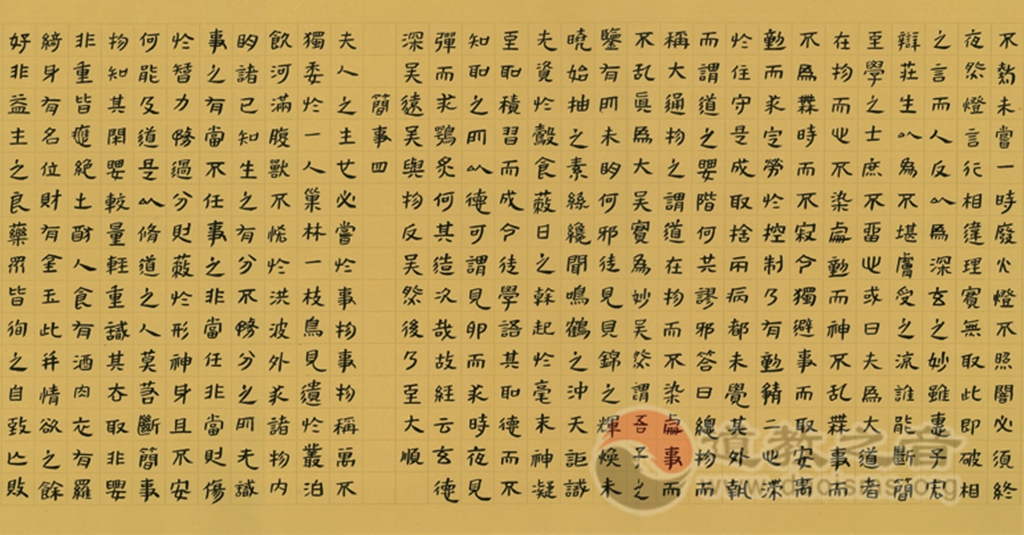 不動未嘗一時廢火燈不照闇必須終
夜然燈言行相違理實無取此即破相
之言而人反以為深玄之妙雖惠子宏
辯莊生以為不堪膚受之流誰能斷簡
至學之士庶不留心或曰夫為大道者
在物而心不染處動而神不亂無事而
不為無時而不寂今獨避事而取安離
動而求定勞於控制乃有動靜二心滯
於住守是成取捨兩病都未覺其外執
而謂道之要階何其謬邪答曰總物而
稱大通物之謂道在物而不染處事而
不亂真為大矣實為妙矣然謂吾子之
鑒有所未明何邪徒見貝錦之輝煥未
曉始抽之素絲纔聞鳴鶴之沖天詎識
先資於鷇食蔽日之幹起於毫末神凝
至聖積習而成今徒學語其聖德而不
知聖之所以德可謂見卵而求時夜見
彈而求鴞炙何其造次哉故經云玄德
深矣遠矣與物反矣然後乃至大順
簡事四
夫人之生也必嘗於事物事物稱萬不
獨委於一人巢林一枝鳥見遺於叢泊
飲河滿腹獸不恡於洪波外求諸物內
明諸己知生之有分不務分之所無識
事之有當不任事之非當任非當則傷
於智力務過分則蔽於形神身且不安
何能及道是以脩道之人莫若斷簡事
物知其閑要較量輕重識其去取非要
非重皆應絕人食有酒肉衣有羅
綺身有名位財有金玉此並情欲之餘
好非益生之良藥眾皆徇之自致亡敗
道教之音